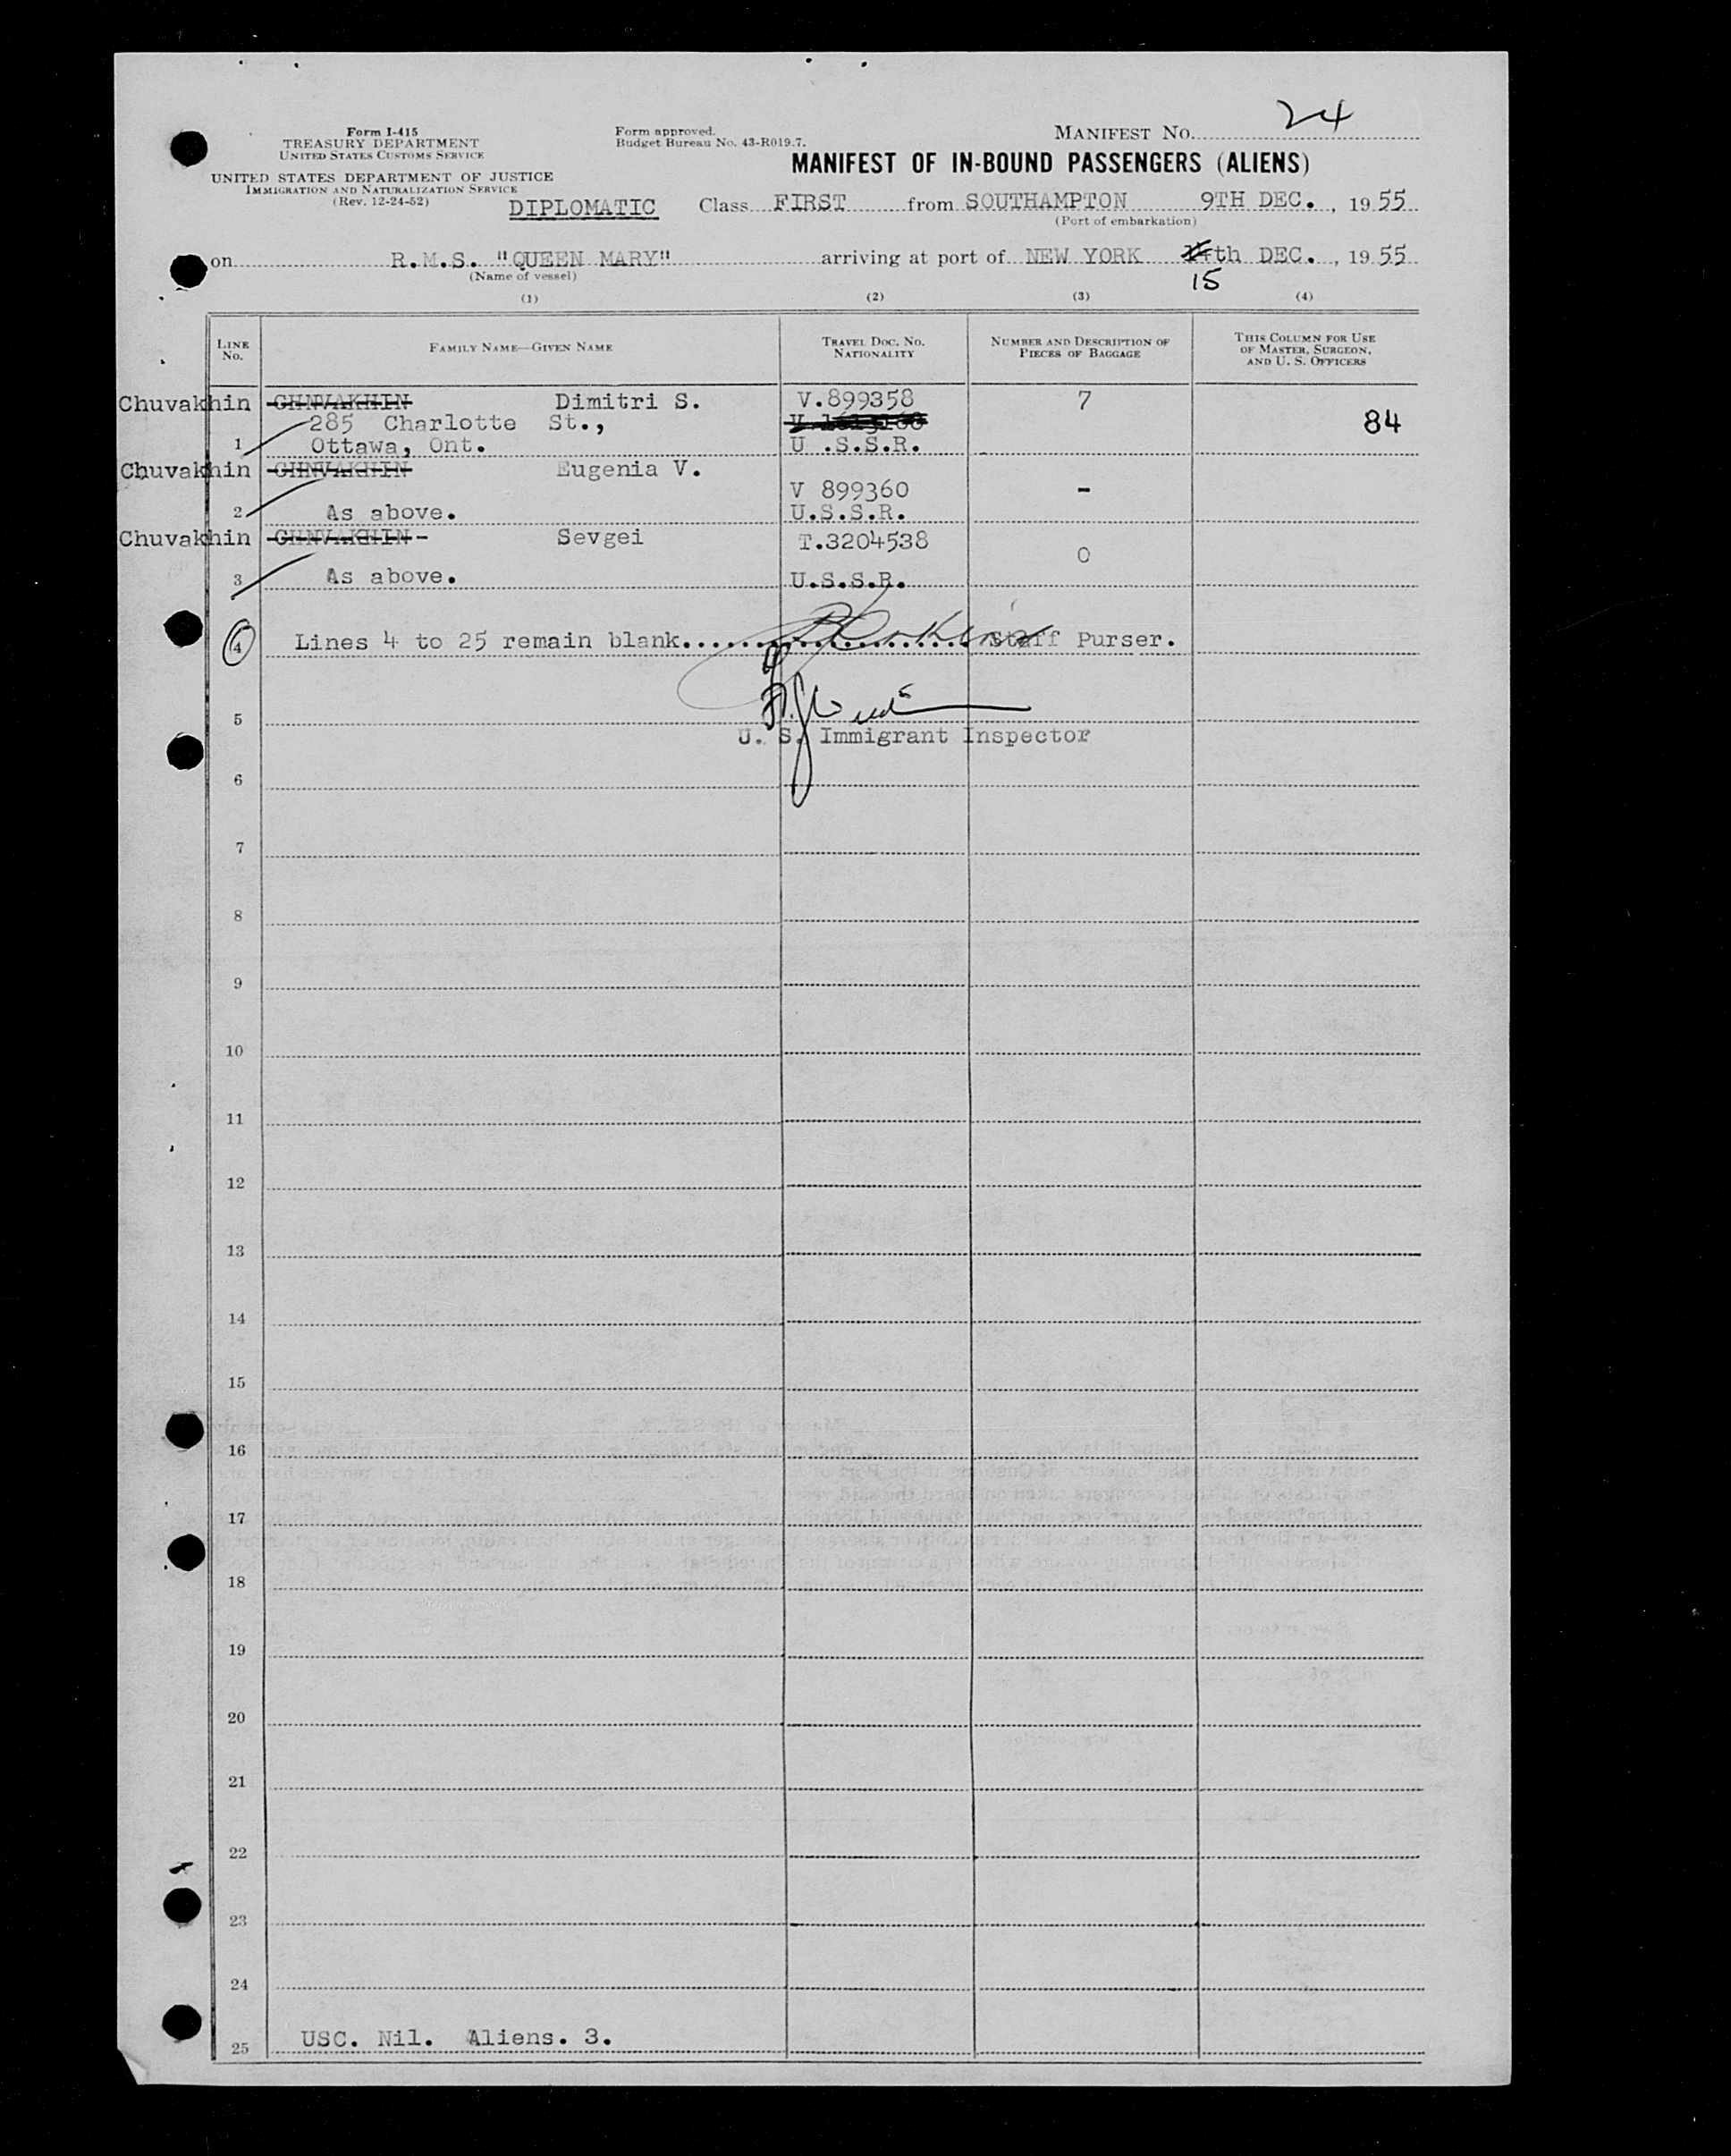 Form I-415
TREASURY DEPARTMENT
UNITED STATES CUSTOMS SERVICE
UNITED STATES DEPARTMENT OF JUSTICE
IMMIGRATION AND NATURALIZATION SERVICE
(Rev. 12-24-52)
Form approved.
Budget Bureau No. 43-R019.7.
MANIFEST NO. 24
MANIFEST OF IN-BOUND PASSENGERS (ALIENS)
DIPLOMATIC Class FIRST from SOUTHAMPTON 9TH DEC., 1955
(Port of embarkation)
on R.M.S. "QUEEN MARY" arriving at port of NEW YORK th DEC., 1955
(Name of vessel) 15
(1) (2) (3) (4)
LINE NO. FAMILY NAME—GIVEN NAME TRAVEL DOC. NO. NATIONALITY NUMBER AND DESCRIPTION OF PIECES OF BAGGAGE THIS COLUMN FOR USE OF MASTER, SURGEON, AND U. S. OFFICERS
Chuvakhin GHNVAKHIN Dimitri S. V.899358 7
285 Charlotte St., 84
1 Ottawa, Ont. U .S.S.R.
Chuvakhin GHNVAKHIN Eugenia V.
V 899360 -
2 As above. U.S.S.R.
Chuvakhin GHNVAKHIN- Sevgei T.3204538
0
3 As above. U.S.S.R.
4 Lines 4 to 25 remain blank. Staff Purser.
5
U. S. Immigrant Inspector
6
7
8
9
10
11
12
13
14
15
16
17
18
19
20
21
22
23
24
25 USC. Nil. Aliens. 3.